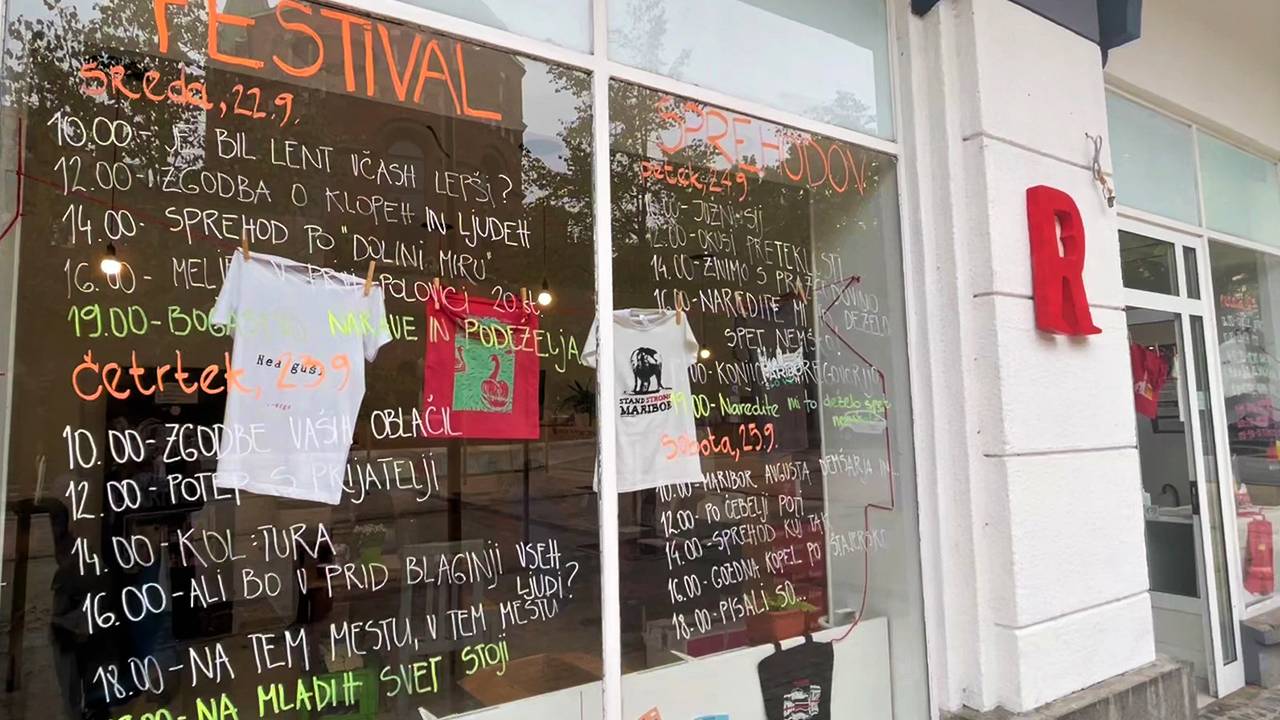 FESTIVAL
sreda, 22.9.
10.00 - JE BIL LENT VČASH LEPŠI?
12.00 - ZGODBA O KLOPEH IN LJUDEH
14.00 - SPREHOD PO "DOLINI MIRU"
16.00 - V PRVI POLOVICI 20. st.
19.00 - NARAVE IN PODEŽELJA
četrtek, 23.9
10.00 - ZGODBE VAŠIH OBLAČIL
12.00 - POTEP S PRIJATELJI
14.00 - KOL:TURA
16.00 - ALI BO V PRID BLAGINJI VSEH
LJUDI?
18.00 - NA TEM MESTU, V TEM MESTU
NA MLADIH SVET STOJI
SPREHODOV
petek, 24.9
12.00 - OKUSI PRETEKLOSTI
14.00 - ŽNIMO S
16.00 - NAREDITE MI TO
DEŽELO
SPET
STAND STRONG
MARIBOR
Naredite mi to deželo spet
sobota, 25.9.
10.00 - MARIBOR AVGUSTA DEMŠARJA IN...
12.00 - PO ČEBELJI POTI
14.00 - SPREHOD KUJ TAK
16.00 - GOZDNA KOPEL PO ŠTAJERSKO
18.00 - PISALI SO...
R